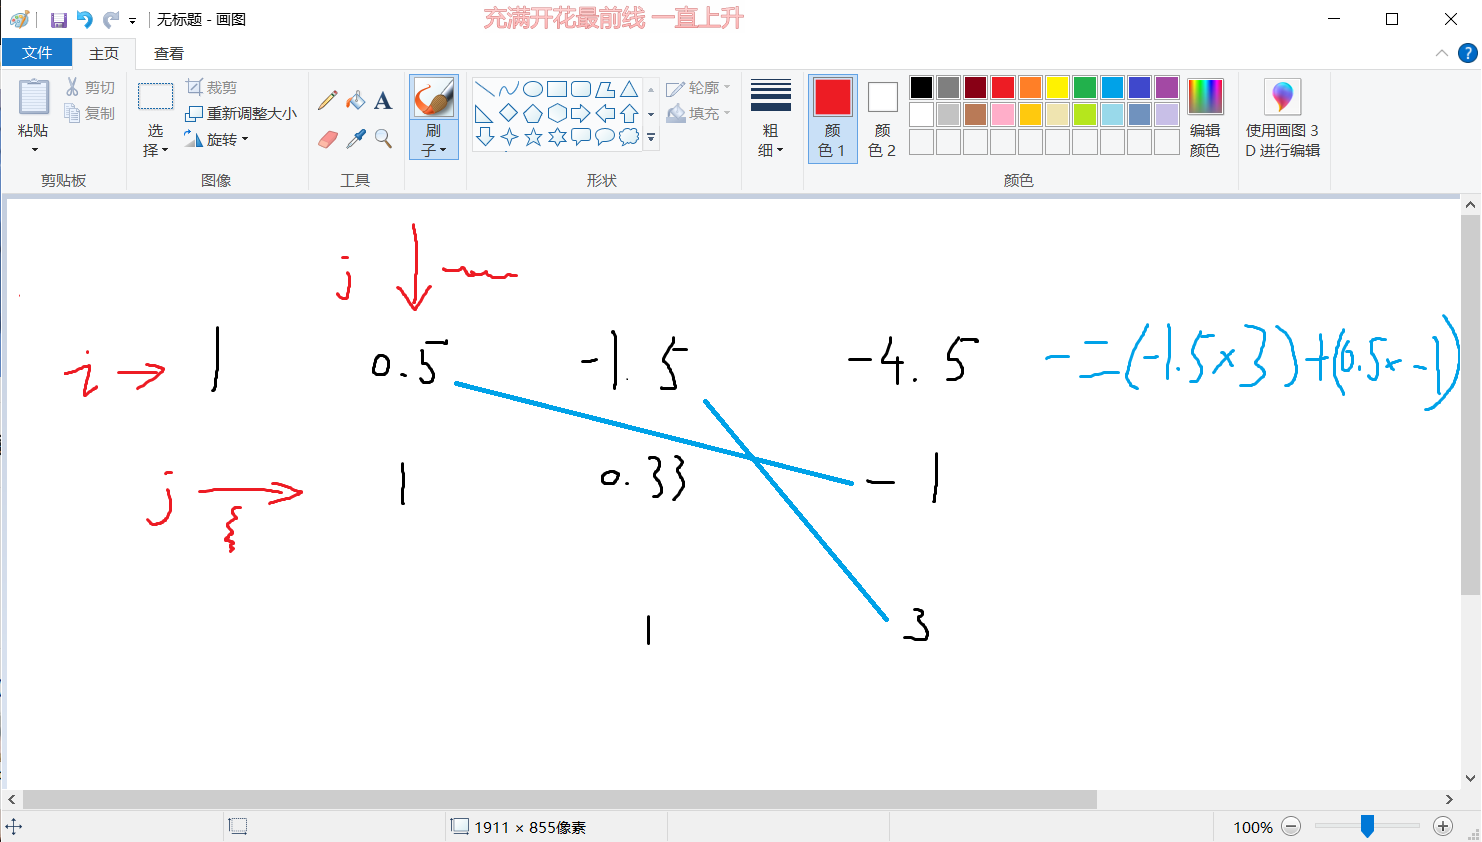 无标题 - 画图
充满开花最前线 一直上升
文件 主页 查看
粘贴
剪切
复制
剪贴板
选择
裁剪
重新调整大小
旋转
图像
A
工具
刷子
轮廓
填充
形状
粗细
颜色 1
颜色 2
编辑颜色
颜色
使用画图 3D 进行编辑
j
i → 1 0.5 -1.5 -4.5 -=(-1.5×3)+(0.5×-1)
j → 1 0.33 -1
1 3
1911 × 855像素
100%